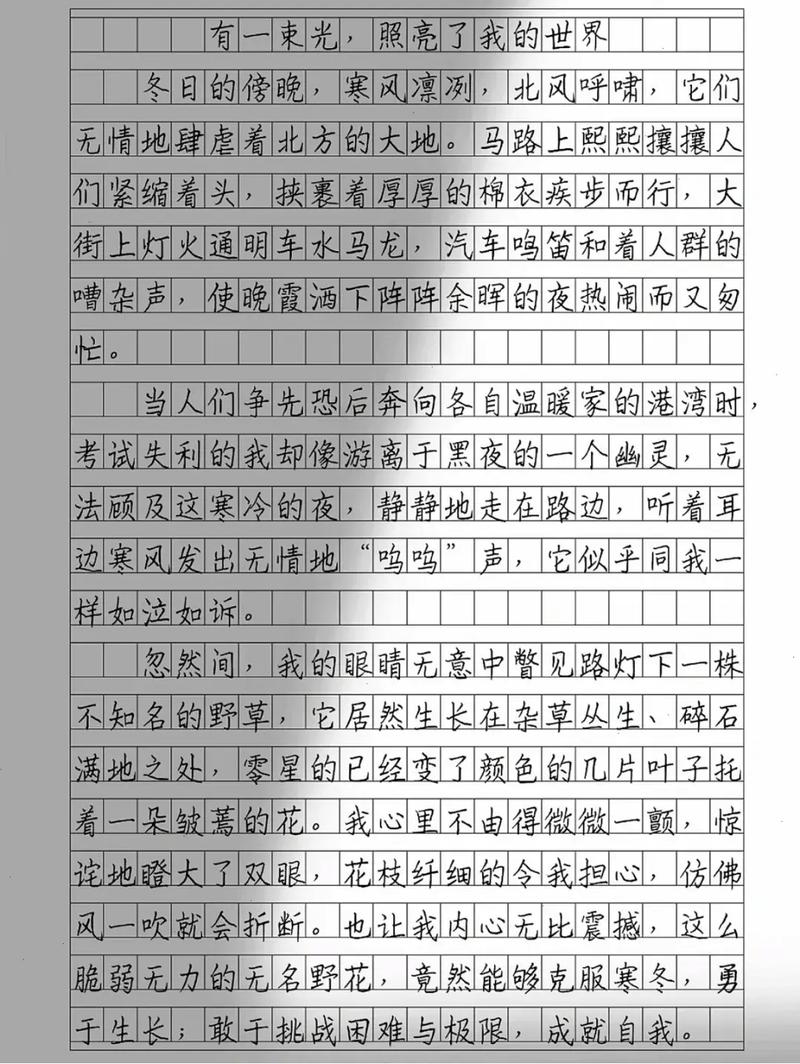 有一束光，照亮了我的世界
冬日的傍晚，寒风凛冽，北风呼啸，它们
无情地肆虐着北方的大地。马路上熙熙攘攘人
们紧缩着头，挟裹着厚厚的棉衣疾步而行，大
街上灯火通明车水马龙，汽车鸣笛和着人群的
嘈杂声，使晚霞洒下阵阵余晖的夜热闹而又匆
忙。
当人们争先恐后奔向各自温暖家的港湾时，
考试失利的我却像游离于黑夜的一个幽灵，无
法顾及这寒冷的夜，静静地走在路边，听着耳
边寒风发出无情地“呜呜”声，它似乎同我一
样如泣如诉。
忽然间，我的眼睛无意中瞥见路灯下一株
不知名的野草，它居然生长在杂草丛生、碎石
满地之处，零星的已经变了颜色的几片叶子托
着一朵皱蔫的花。我心里不由得微微一颤，惊
诧地瞪大了双眼，花枝纤细的令我担心，仿佛
风一吹就会折断。也让我内心无比震撼，这么
脆弱无力的无名野花，竟然能够克服寒冬，勇
于生长；敢于挑战困难与极限，成就自我。